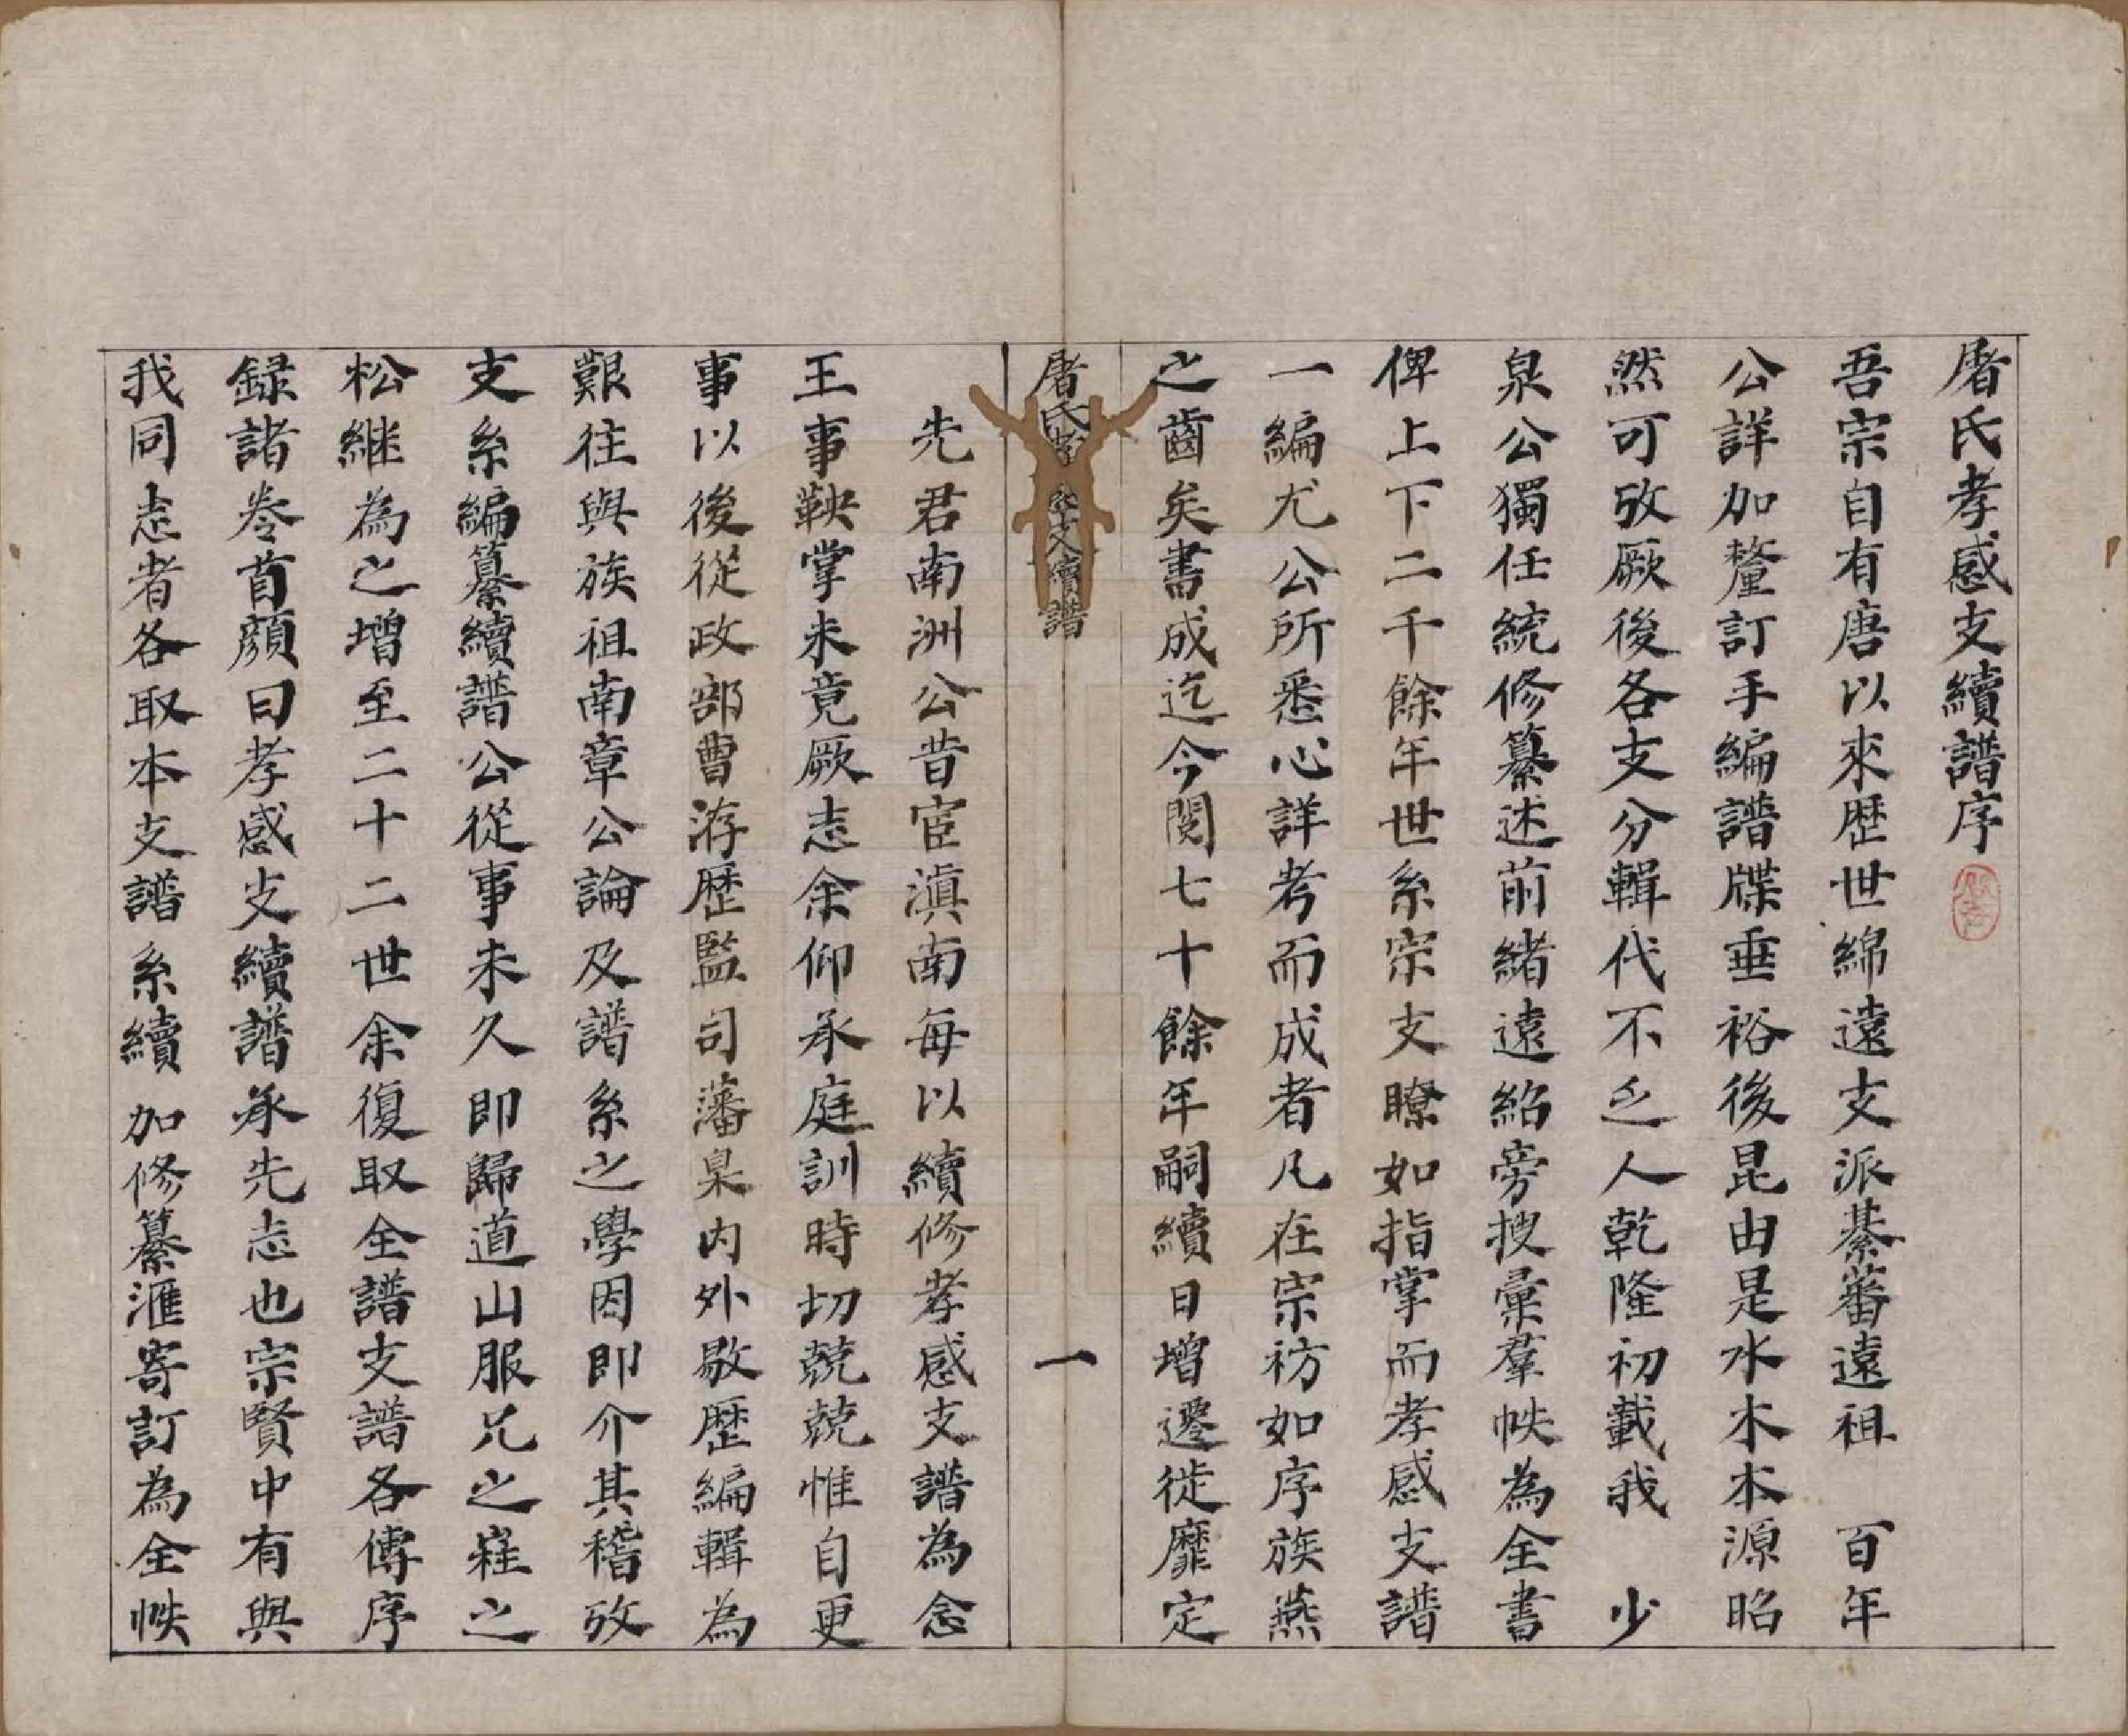 屠氏孝感支續譜序
吾宗自有唐以來歷世綿遠支派蓁蕃遠祖　百年
公詳加釐訂手編譜牒垂裕後昆由是水木本源昭
然可攷厥後各支分輯代不乏人乾隆初載我　少
泉公獨任統修纂述前緒遠紹旁搜彙羣帙為全書
俾上下二千餘年世系宗支瞭如指掌而孝感支譜
一編尤公所悉心詳考而成者凡在宗祊如序族燕
之齒矣書成迄今閱七十餘年嗣續日增遷徙靡定
屠氏孝感支續譜
一
先君南洲公昔宦滇南每以續修孝感支譜為念
王事鞅掌未竟厥志余仰承庭訓時切兢兢惟自更
事以後從政部曹洊歷監司藩臬內外敭歷編輯為
艱往與族祖南章公論及譜系之學因即介其稽攷
支系編纂續譜公從事未久即歸道山服兄之嵀之
松繼為之增至二十二世余復取全譜支譜各傳序
錄諸卷首顏曰孝感支續譜承先志也宗賢中有與
我同志者各取本支譜系續加修纂滙寄訂為全帙